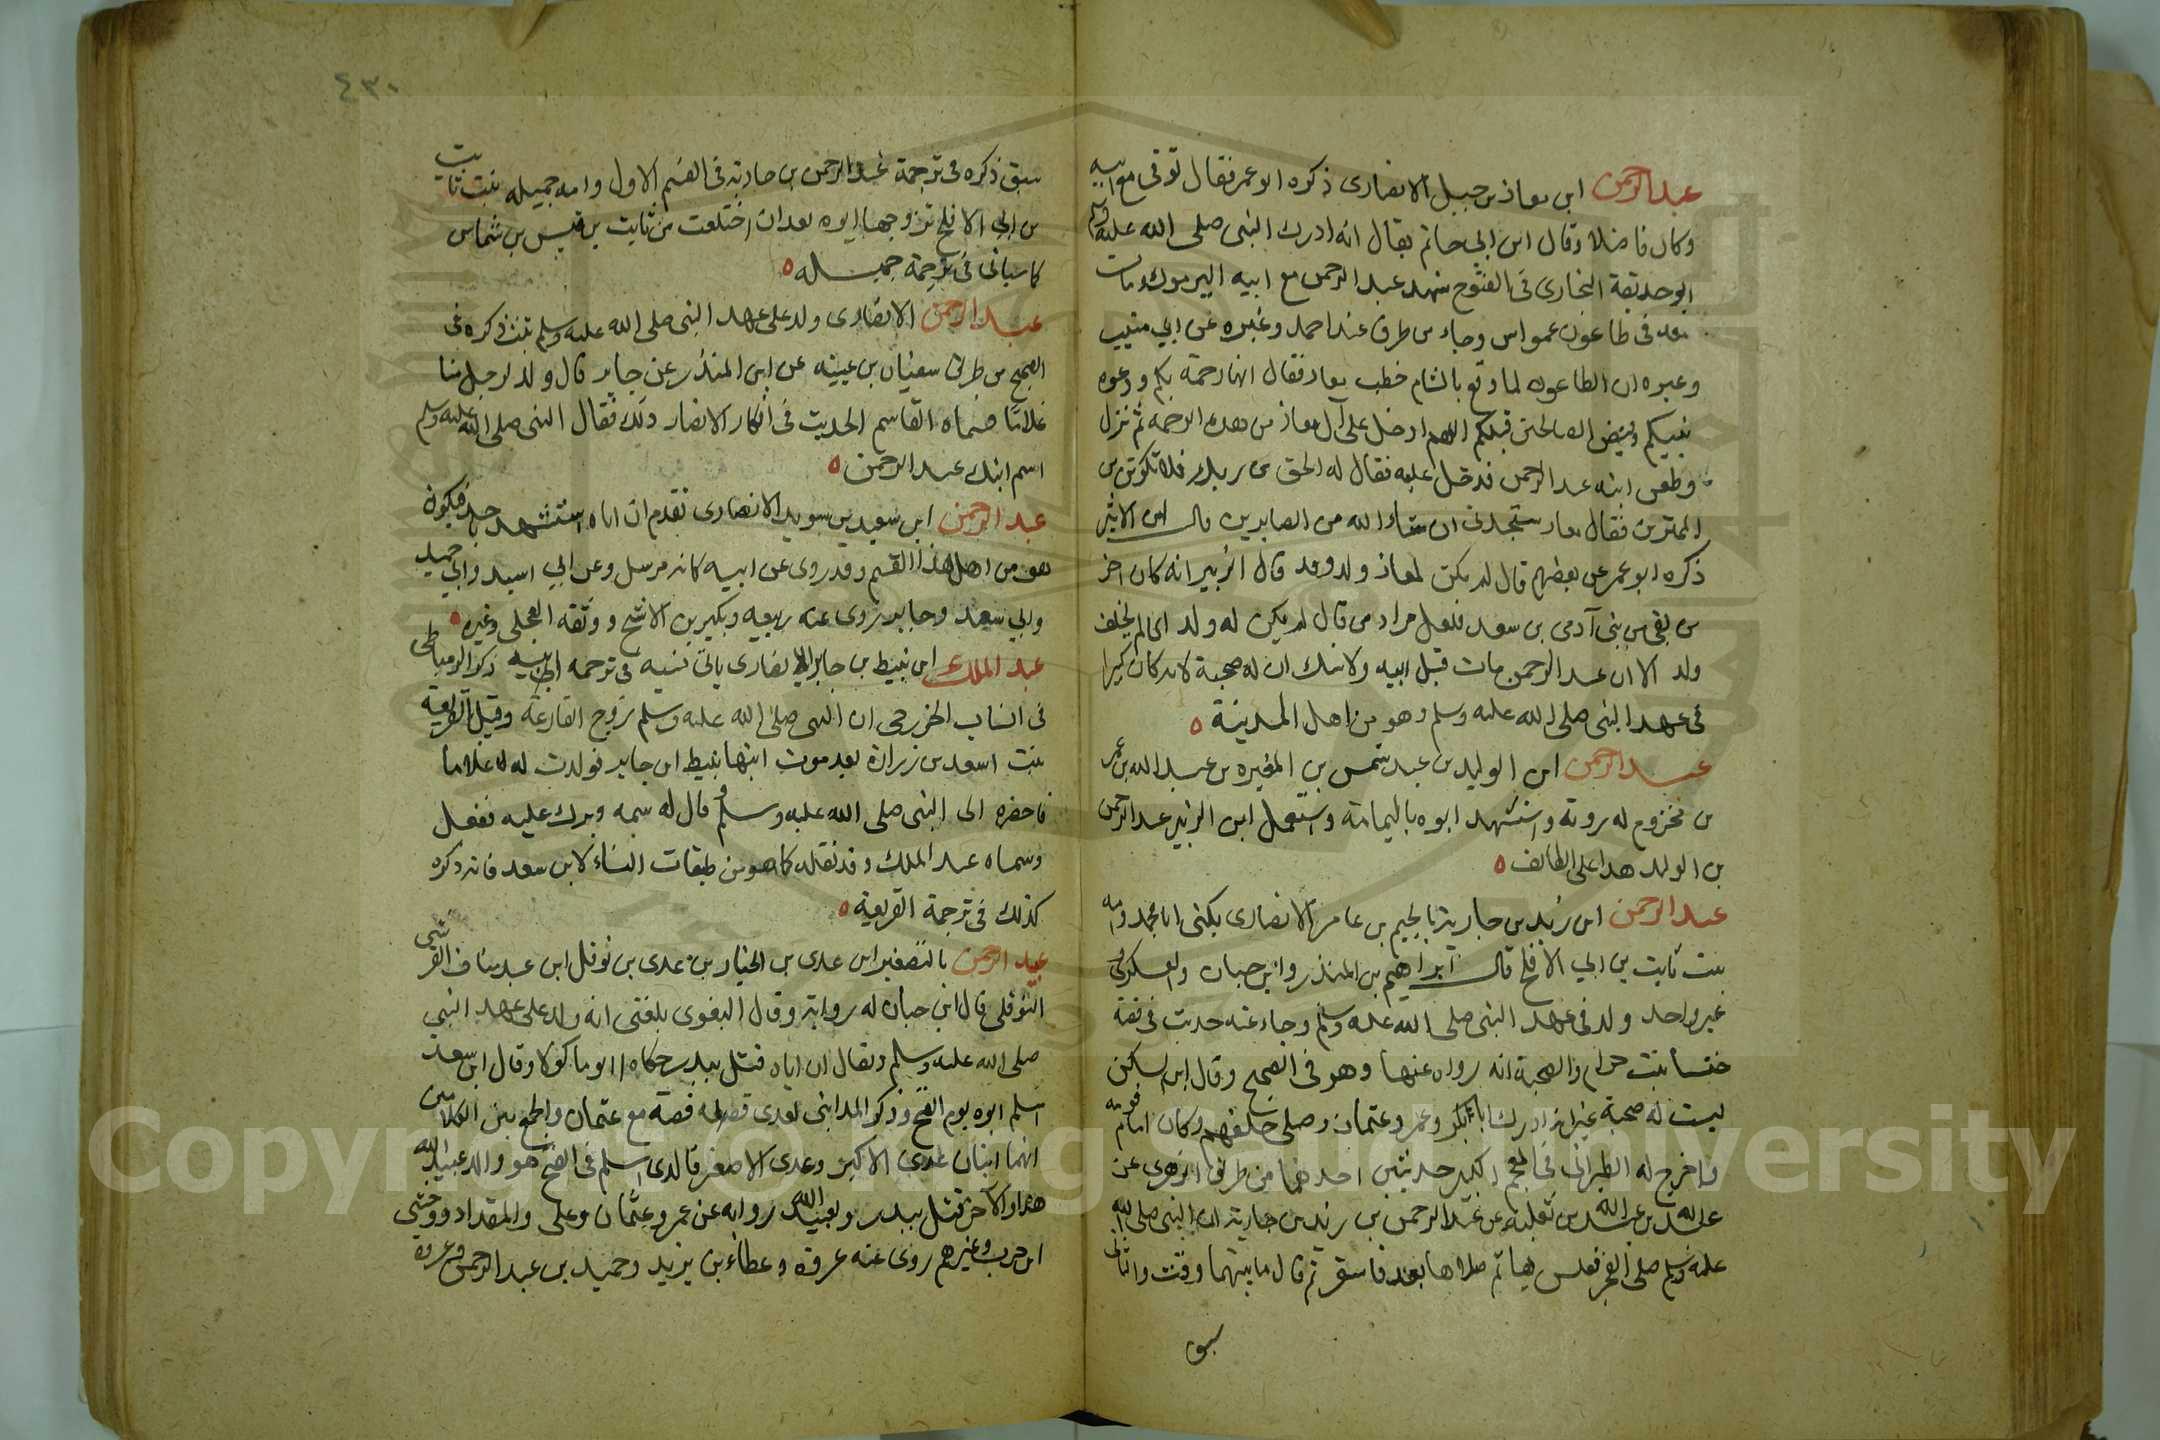 عبد الرحمن ابن معاذ بن جبل الانصارى ذكره ابو عمر فقال توفى مع ابيه
وكان فاضلا وقال ابن ابي حاتم يقال انه ادرك النبى صلى الله عليه وسلم
ابو حذيفة البخارى فى الفتوح شهد عبد الرحمن مع ابيه اليرموك ومات
معه فى طاعون عمواس وجاء من طرق عند احمد وغيره عن ابي منيب
وغيره ان الطاعون لما وقع بالشام خطب معاذ فقال انها رحمة بكم ودعوة
نبيكم وقبض الصالحين قبلكم اللهم ادخل على آل معاذ من هذه الرحمه ثم نزل
وطعن ابنه عبد الرحمن فدخل عليه فقال له الحق من ربك فلا تكونن من
الممترين فقال معاذ ستجدنى ان شاء الله من الصابرين قال ابن الاثير
ذكره ابو عمر عن بعضهم قال لم يكن لمعاذ ولد وقد قال الزبير انه كان اخر
من بقى من بنى آدمى بن سعد فلعل مراد من قال لم يكن له ولد اى لم يخلف
ولد الا ان عبد الرحمن مات قبل ابيه ولا شك ان له صحبة لانه كان كبيرا
فى عهد النبى صلى الله عليه وسلم وهو من اهل المدينة ه
عبد الرحمن ابن الوليد بن عبد شمس بن المغيره بن عبد الله بن عمر
بن مخزوم له روية واستشهد ابوه باليمامة واستعمل ابن الزبير عبد الرحمن
بن الوليد هذا على الطائف ه
عبد الرحمن ابن زيد بن جارية بالجيم بن عامر الانصارى يكنى ابا محمد وامه
بنت ثابت بن ابي الافلح قال ابراهيم بن المنذر وابن حبان والعسكرى و
غير واحد ولد فى عهد النبى صلى الله عليه وسلم وجاء عنه حديث فى قصة
خنسا بنت حرام والصحبة انه رواه عنها وهو فى الصحيح وقال ابن السكن
ليست له صحبة غير انه ادرك ابا بكر وعمر وعثمان وصلى خلفهم وكان امام قومه
واخرج له الطبرانى فى المعجم الكبير حديثين احدهما من طريق الزهرى عن
عبد الله بن عبد الله بن ثعلبة عن عبد الرحمن بن زيد بن جارية ان النبى صلى الله
عليه وسلم صلى الفجر فغلس بها ثم صلاها بعد فاسفر ثم قال ما بينهما وقت والثانى
سبق
٤٣٠
سبق ذكره فى ترجمة عبد الرحمن بن حارثة فى القسم الاول وامه جميله بنت ثابت
بن ابي الافلح تزوجها ابوه بعد ان اختلعت من ثابت بن قيس بن شماس
كما سياتى فى ترجمة جميله ه
عبد الرحمن الانصارى ولد على عهد النبى صلى الله عليه وسلم ثبت ذكره فى
الصحيح من طريق سفيان بن عيينه عن ابن المنكدر عن جابر قال ولد لرجل منا
غلاما فسماه القاسم الحديث فى انكار الانصار ذلك فقال النبى صلى الله عليه وسلم
اسم ابنك عبد الرحمن ه
عبد الرحمن ابن سعيد بن سويد الانصارى تقدم ان اباه استشهد باحد فيكون
هو من اهل هذا القسم وقد روى عن ابيه كانه مرسل وعن ابي اسيد وابي حميد
وابي سعيد وجابر روى عنه ربيعه وبكير بن الاشج ووثقه العجلى وغيره ه
عبد الملك ابن نبيط بن جابر الانصارى ياتى نسبه فى ترجمه ابيه ذكر الدمياطى
فى انساب الخزرجى ان النبى صلى الله عليه وسلم تزوج الفارعة وقيل الفريعة
بنت اسعد بن زرارة بعد موت ابنها نبيط ابن جابر فولدت له غلاما
فاحضره الى النبى صلى الله عليه وسلم وقال له سمه وبرك عليه ففعل
وسماه عبد الملك وقد نقله كما هو من طبقات النساء لابن سعد فانه ذكره
كذلك فى ترجمة الفريعة ه
عبيد الرحمن بالتصغير ابن عدى بن الخيار بن عدى بن نوفل ابن عبد مناف القرشى
النوفلى قال ابن حبان له رواية وقال البغوى بلغنى انه ولد على عهد النبى
صلى الله عليه وسلم ويقال ان اباه قتل ببدر حكاه ابو ماكولا وقال ابن سعد
اسلم ابوه يوم الفتح وذكر المداينى لعدى قصة مع عثمان والجمع بين الكلامين
انهما اثنان عدى الاكبر وعدى الاصغر فالذى اسلم فى الفتح هو والد عبيد الله
هذا والآخر قتل ببدر ولعبيد الله رواية عن عمر وعثمان وعلى والمقداد ووحشى
ابن حرب وغيرهم روى عنه عروة وعطاء بن يزيد وحميد بن عبد الرحمن وعروة
Copyright © King Saud University